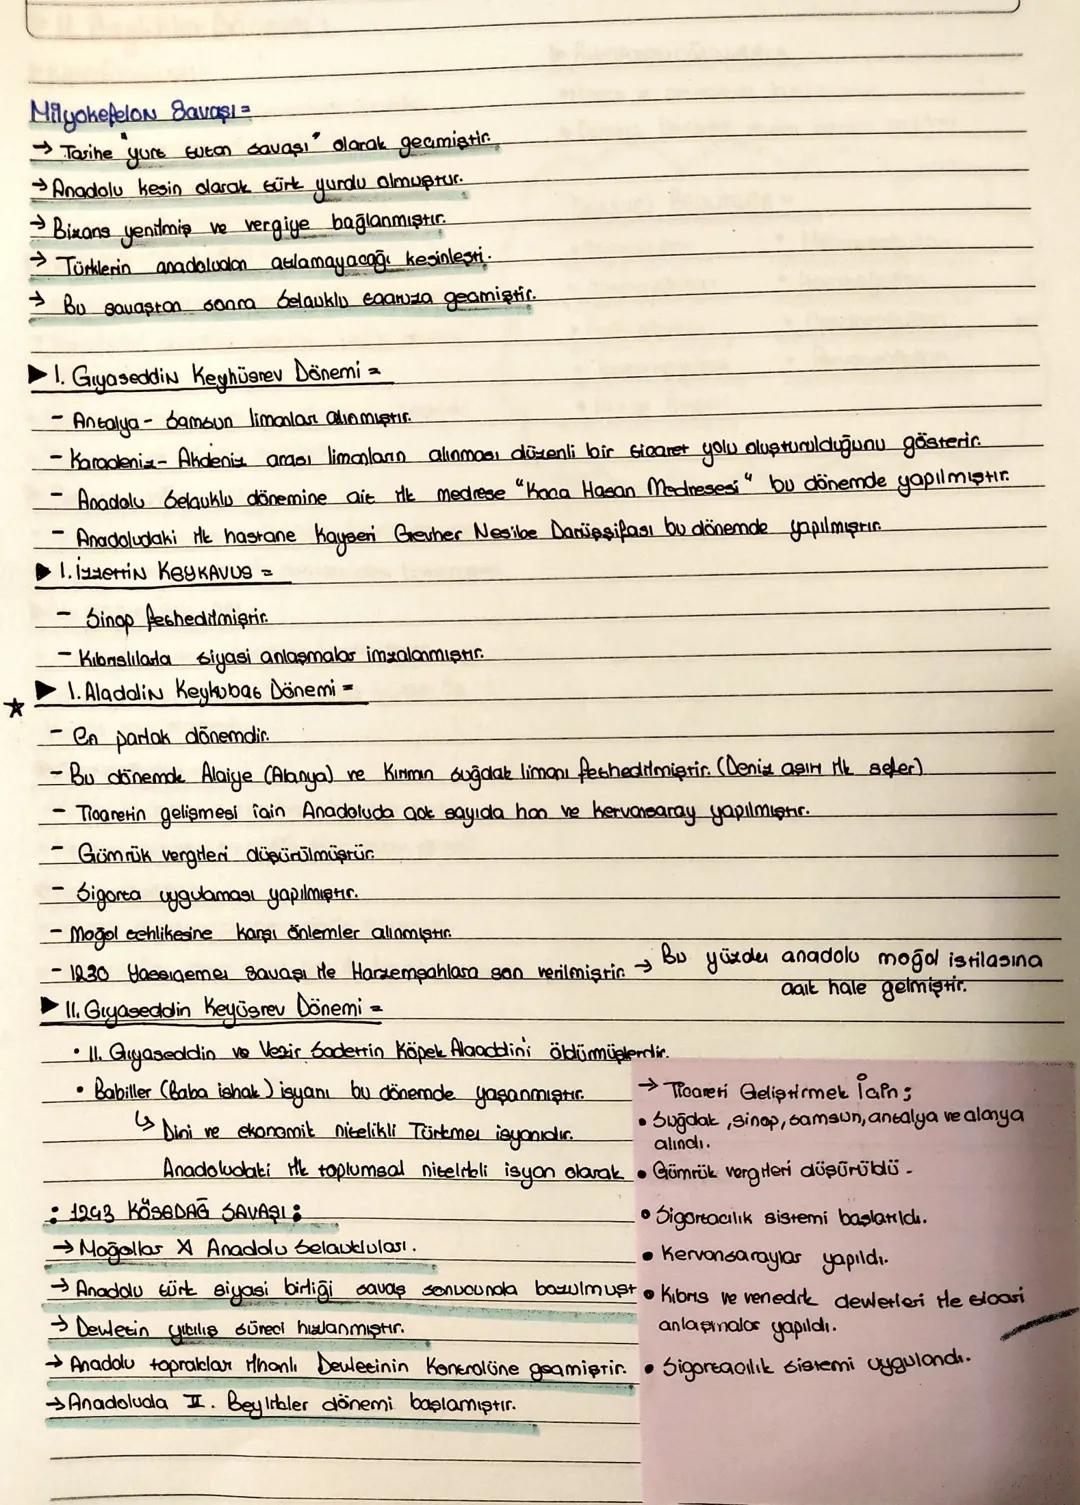 Miryokefelon Savaşı =
→ Tarihe "yurt tutan savaşı" olarak geçmiştir.
→ Anadolu kesin olarak türk yurdu olmuştur.
→ Bizans yenilmiş ve vergiye bağlanmıştır.
→ Türklerin anadoludan atılamayacağı kesinleşti.
→ Bu savaştan sonra Selçuklu taarruza geçmiştir.
▶ I. Gıyaseddin Keyhüsrev Dönemi =
- Antalya - Samsun limanları alınmıştır.
- Karadeniz - Akdeniz arası limanların alınması düzenli bir ticaret yolu oluşturulduğunu gösterir.
- Anadolu Selçuklu dönemine ait ilk medrese "Koca Hasan Medresesi" bu dönemde yapılmıştır.
- Anadoludaki ilk hastane Kayseri Gevher Nesibe Darüşşifası bu dönemde yapılmıştır.
▶ I. İzzettin KEYKAVUS =
- Sinop fethedilmiştir.
- Kıbrıslılarla siyasi anlaşmalar imzalanmıştır.
☆ ▶ I. Aladdin Keykubat Dönemi =
- En parlak dönemdir.
- Bu dönemde Alaiye (Alanya) ve Kırımın Suğdak limanı fethedilmiştir. (Deniz aşırı ilk sefer)
- Ticaretin gelişmesi için Anadoluda çok sayıda han ve kervansaray yapılmıştır.
- Gümrük vergileri düşürülmüştür.
- Sigorta uygulaması yapılmıştır.
- Moğol tehlikesine karşı önlemler alınmıştır.
- 1230 Yassıçemen Savaşı ile Harzemşahlara son verilmiştir. → Bu yüzden anadolu moğol istilasına
açık hale gelmiştir.
▶ II. Gıyaseddin Keyüsrev Dönemi =
• II. Gıyaseddin ve Vezir Sadettin Köpek Alaaddini öldürmüşlerdir.
• Babiller (Baba ishak) isyanı bu dönemde yaşanmıştır.
↳ Dini ve ekonomik nitelikli Türkmen isyanıdır.
Anadoludaki ilk toplumsal nitelikli isyan olarak
: 1243 KÖSEDAĞ SAVAŞI :
→ Moğollar X Anadolu Selçukluları.
→ Anadolu türk siyasi birliği savaş sonucunda bozulmuşt
→ Devletin yıkılış süreci hızlanmıştır.
→ Anadolu toprakları İlhanlı Devletinin Kontrolüne geçmiştir.
→ Anadoluda II. Beylikler dönemi başlamıştır.
→ Ticareti Geliştirmek İçin ;
• Suğdak, sinop, samsun, antalya ve alanya
alındı.
• Gümrük vergileri düşürüldü -
• Sigortacılık sistemi başlatıldı.
• Kervansaraylar yapıldı.
• Kıbrıs ve venedik devletleri ile ticari
anlaşmalar yapıldı.
• Sigortacılık sistemi uygulandı.